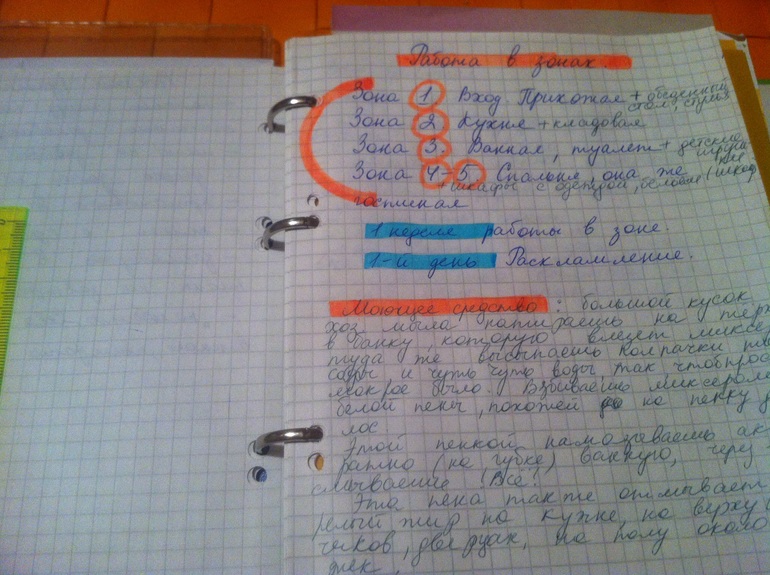 Работа в зонах.
Зона 1 Вход Прихожая + обеденный
стол, стулья
Зона 2 Кухня + кладовая
Зона 3. Ванная, туалет + детские
Зона 4-5 Спальня, она же
+ шкафы с одеждой, бельём (шкаф
гостиная
1 неделя работы в зоне.
1-й день Расхламление.
Моющее средство: большой кусок
хоз мыла натираешь на
в банку, которую влезет
туда же высыпаешь колпачки
соды и чуть чуть воды так чтоб
мокрое было. Взбиваешь миксером
белой пены, похожей на пенку
лос
Этой пенкой намазываешь
ратно (на губке) ванную,
смываешь Всё!
Эта пена также отмывает
релый жир на кухне на верху
чиков, две ручк, на полу около
жек,